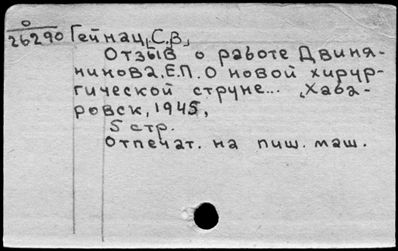 О
26290 Гейнац, [С.В.]
Отзыв о работе Двиня-
нинова, Е.П. О новой хирур-
гической струне... , Хаба-
ровск, 1945,
5 стр.
Отпечат. на пиш. маш.